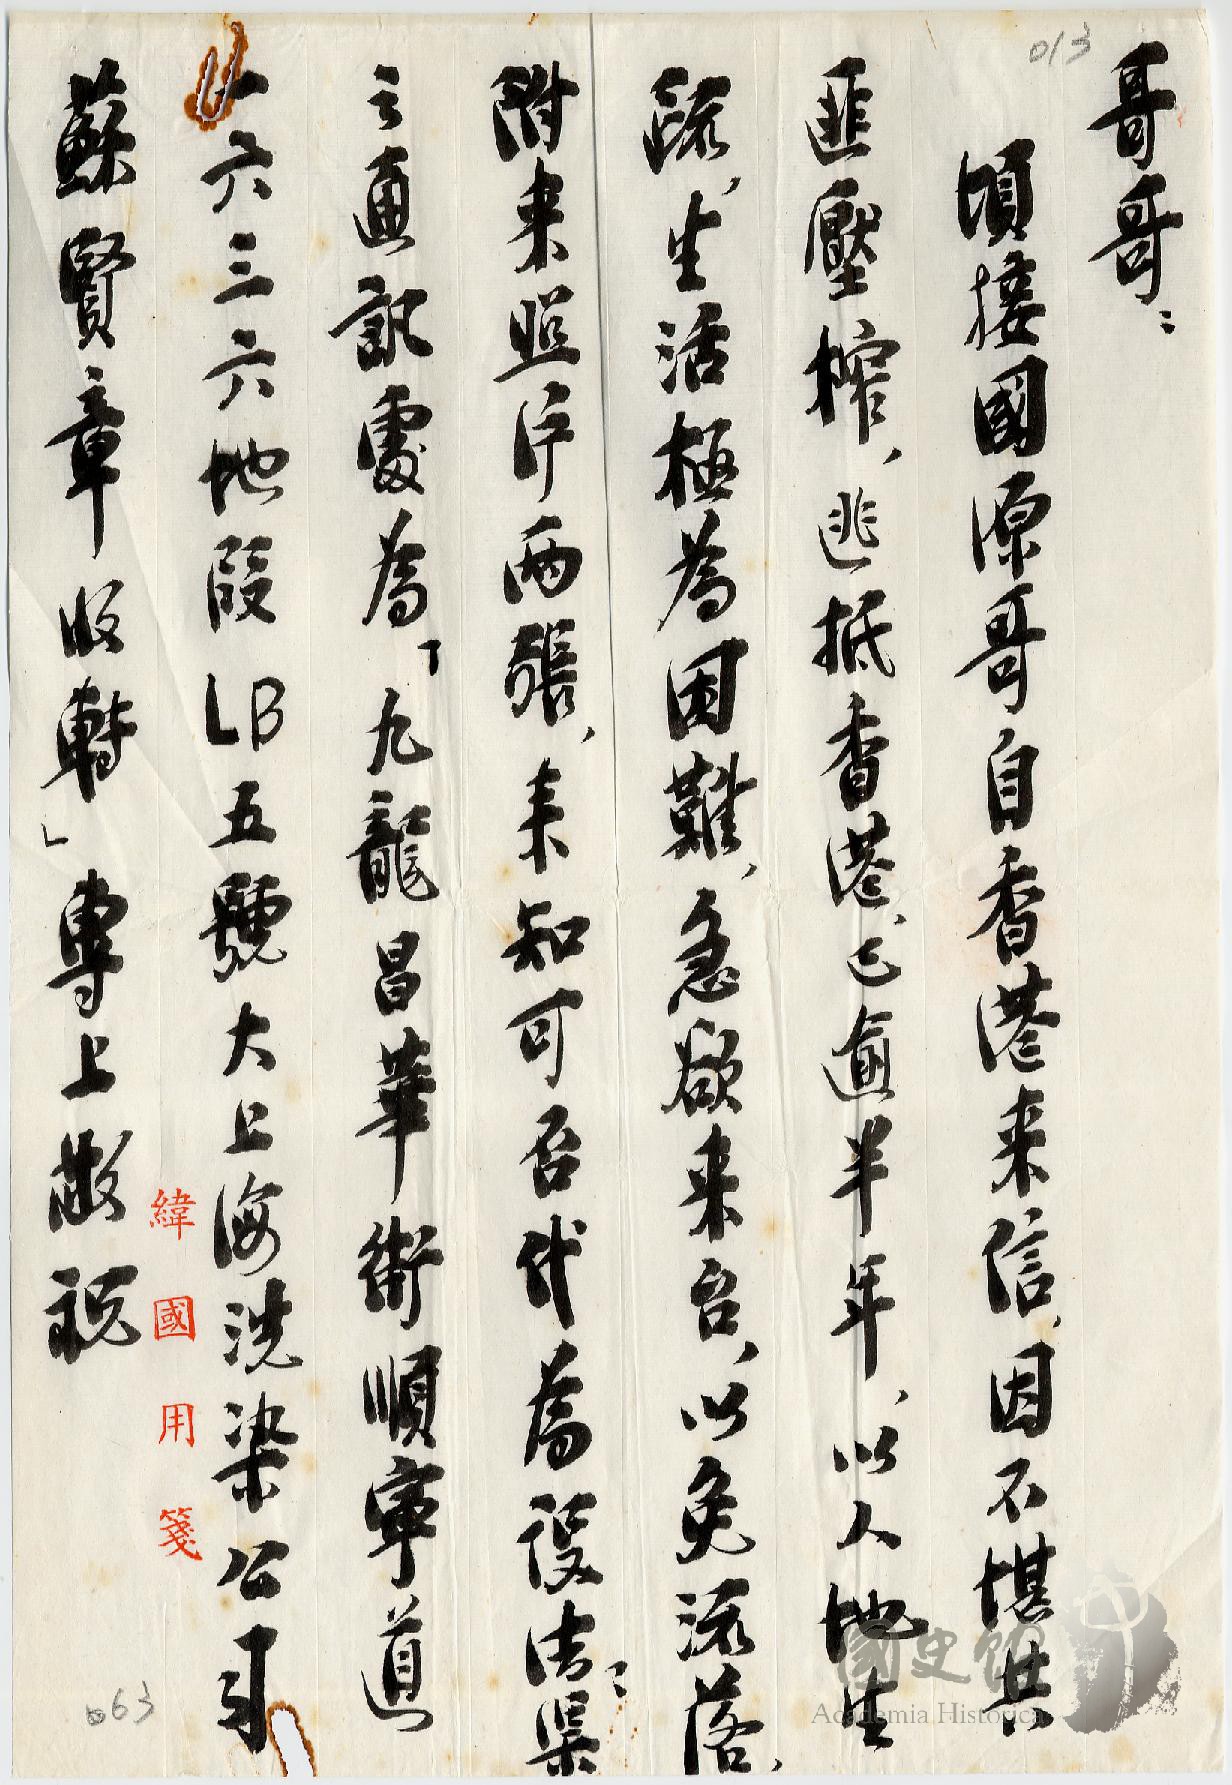 013
哥哥：
頃接國源哥自香港来信、因不堪共
匪壓榨、逃抵香港、已逾半年、以人地生
疏、生活極為困難、急欲来台、以免流落、
附来照片两張、未知可否代為設法：渠
之通訊處為「九龍昌華街順寧道
一六三六地段LB五號大上海洗染公司
蘇賢章收轉」專上敬祝
緯國用箋
063
國史館
Academia Historica